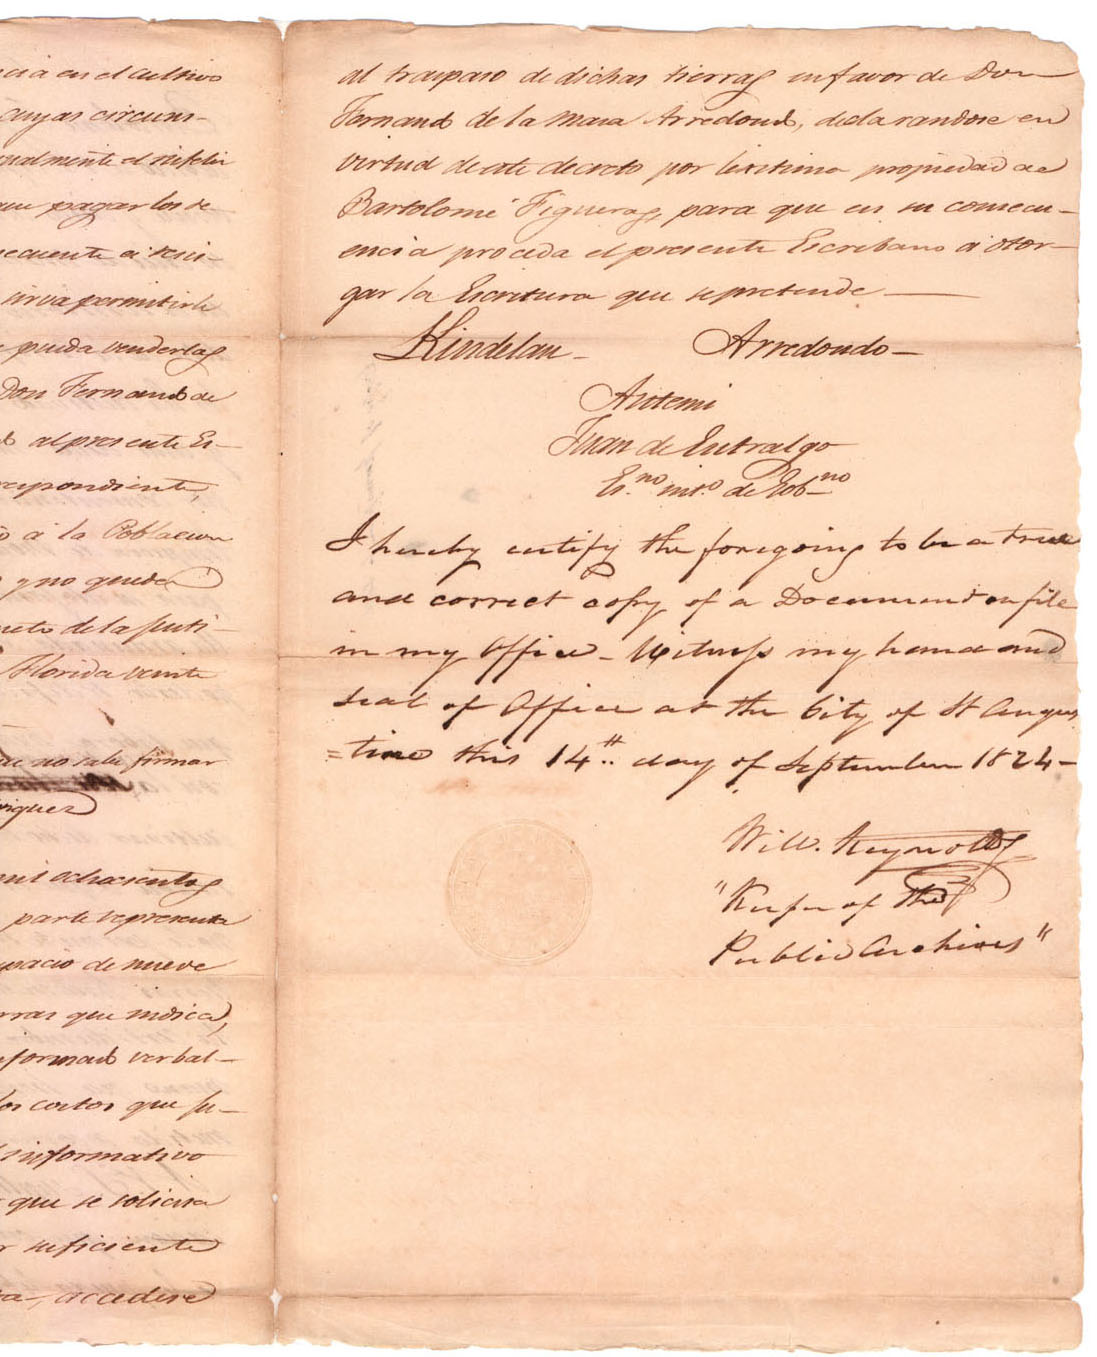 cia en el cultivo
cuyas circuns-
ualmente el
que pagar los de
secuente a
sirva permitirle
e pueda venderlas
Don Fernando de
al presente Es-
respondiente,
a la Poblacion
y no queda
de la
Florida veinte
que no sabe firmar
riguez
mil ochocientos
parte representa
espacio de nueve
rras que indica,
nformado verbal-
los costos que su-
informativo
que se solicita
r suficiente
accedere
al traspaso de dichas tierras en favor de Don
Fernando de la Maza Arredondo, declarandose en
virtud de este decreto por lexitima propiedad de
Bartolomé Figueras, para que en su consecu-
encia proceda el presente Escribano á otor-
gar la Escritura que se pretende —
Kindelan - Arredondo -
Antemi
Juan de Entralgo
Es.no int.o de Gob-no
I hereby certify the foregoing to be a true
and correct copy of a Document on file
in my Office - Witness my hand and
seal of Office at the City of St Augus
=tine this 14th day of September 1824 -
Will. Reynolds
"Keeper of the
Public Archives"